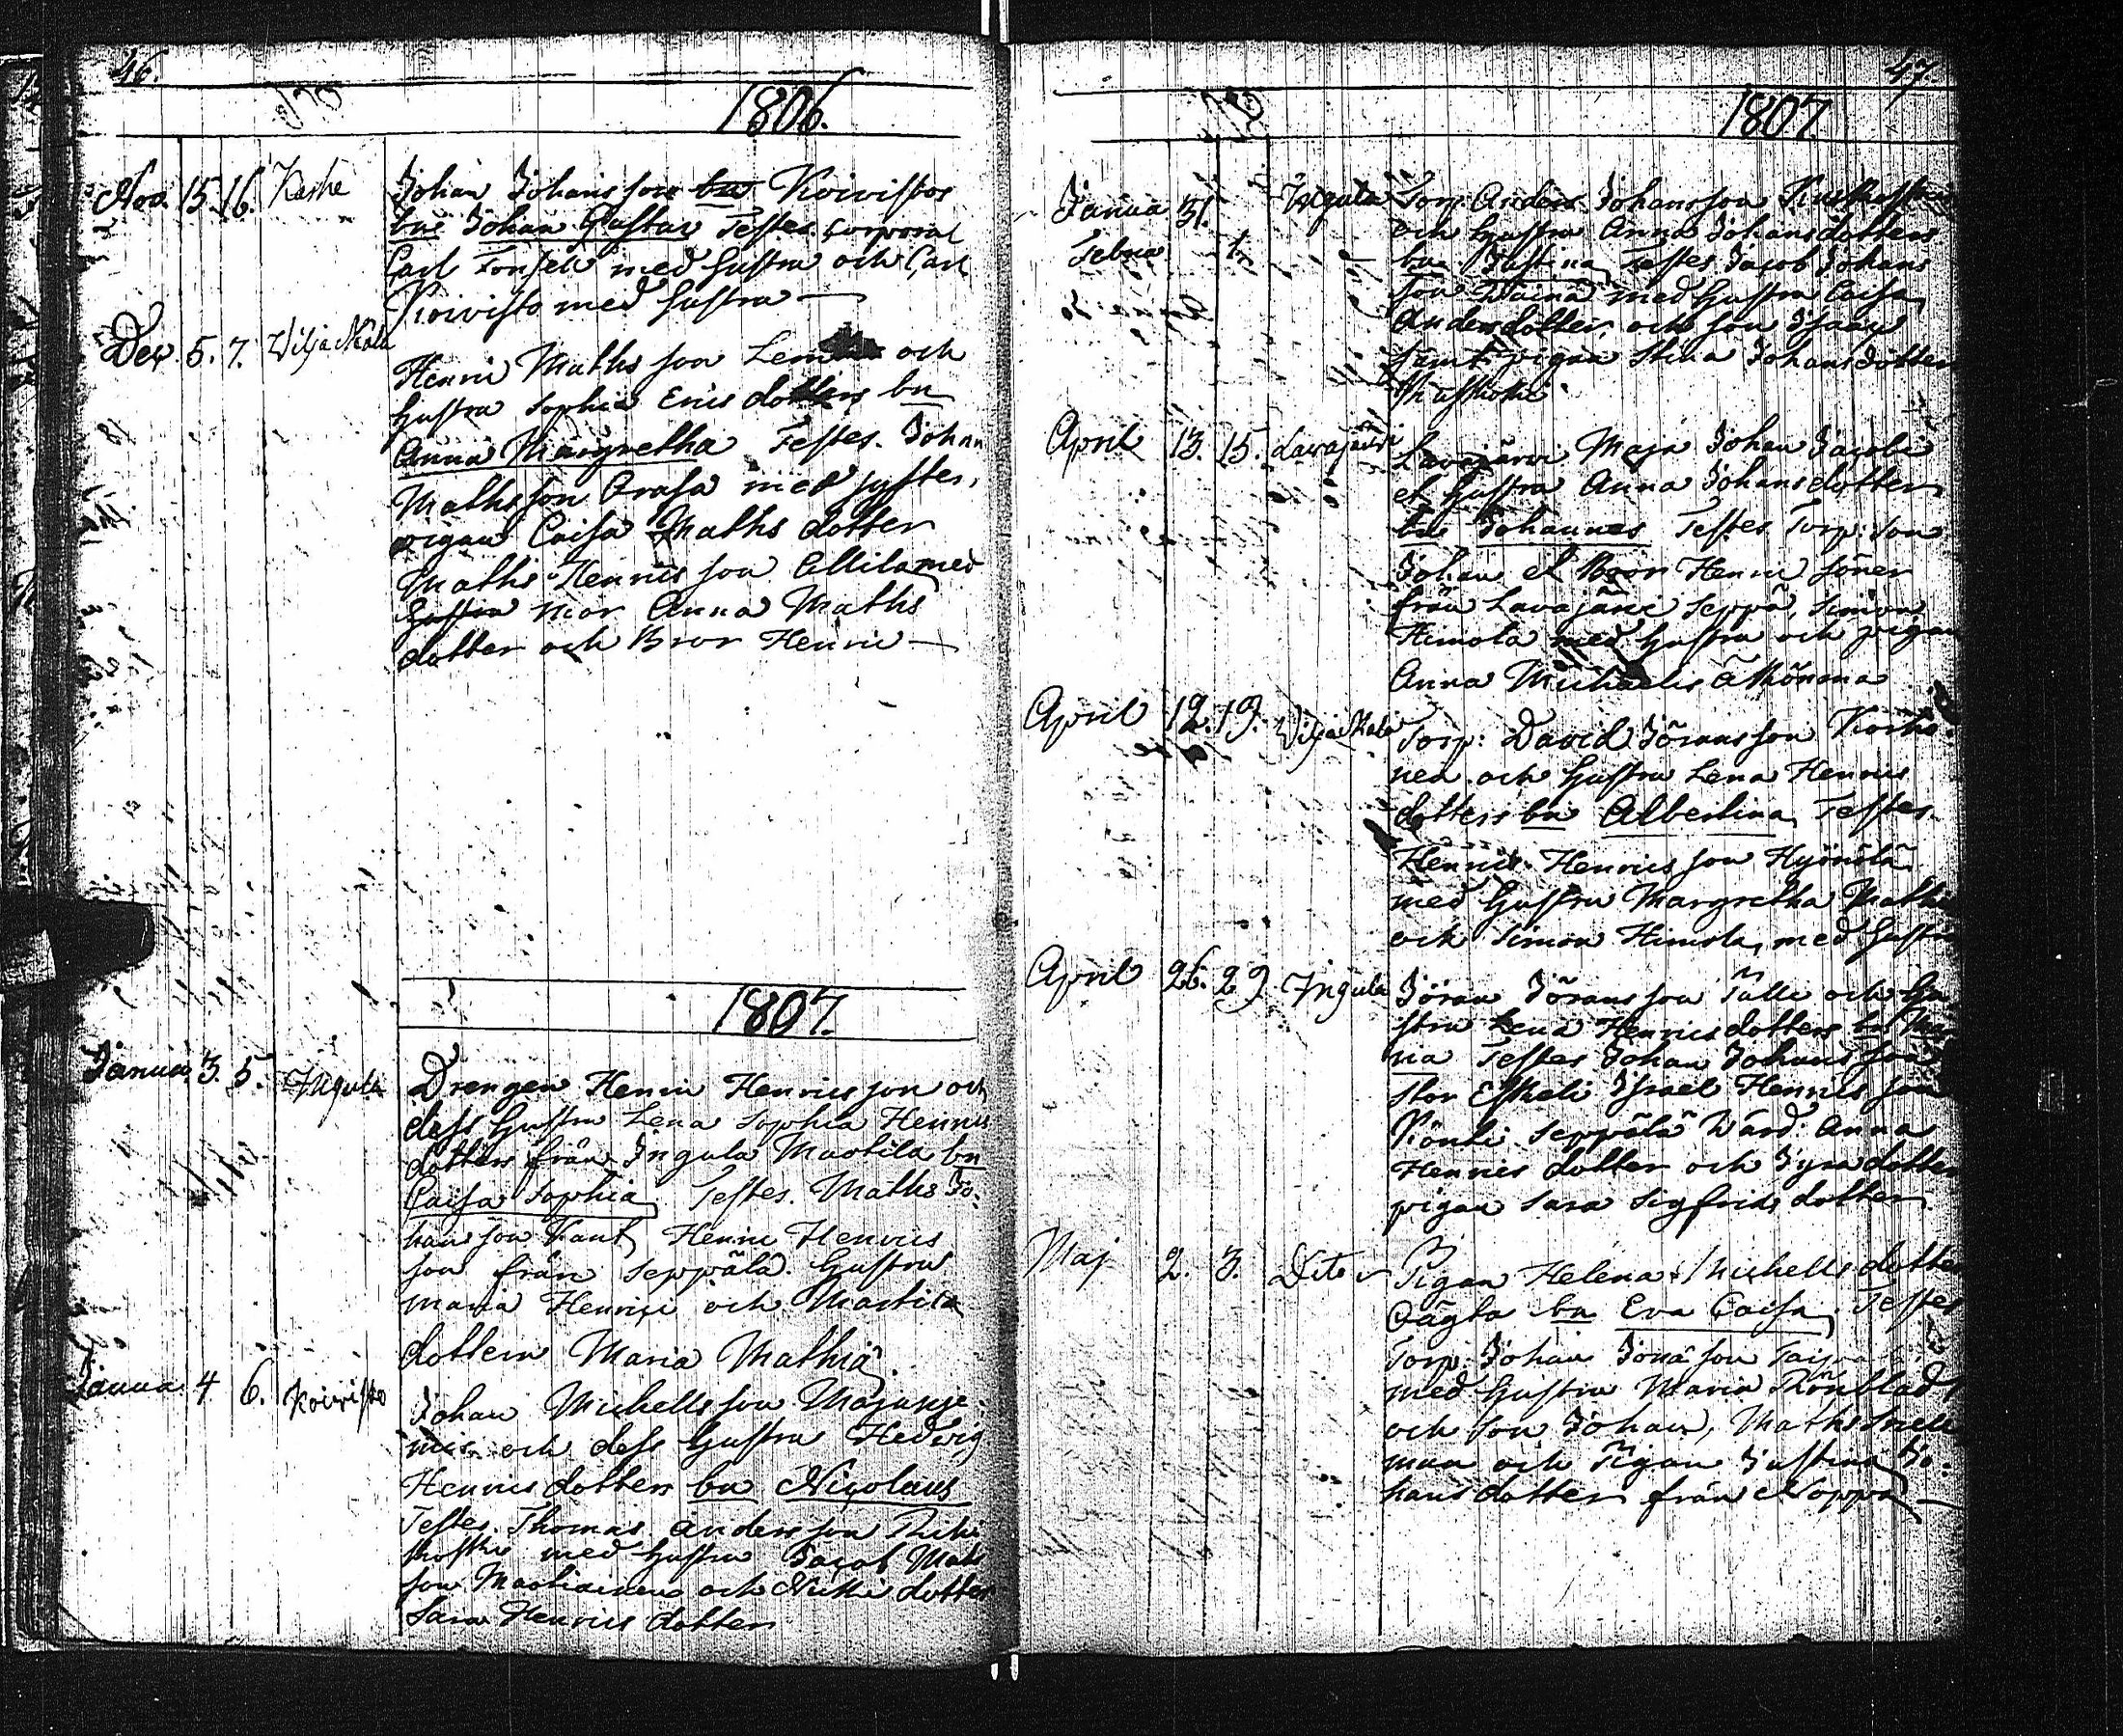 46.
1806.
Nov. 15. 16. Keshe Johan Johansson bn Koivistos
bn Johan Gustav Testes. Corporal
Carl Fonsell med hustru och Carl
Koivisto med hustru —
Dec. 5. 7. Viljackala Henric Mathsson och
hustru Sophia Erics dotters bn
Anna Margretha Testes. Johan
Mathsson Orasa med syster,
pigan Caisa Maths dotter
Maths Henricsson Ollila med
hustru mor Anna Maths
dotter och Bror Henric —
1807.
Janua. 3. 5. Ingula Drengen Henric Henricsson och
dess hustru Lena Sophia Henrics
dotters från Ingula Martila bn
Caisa Sophia. Testes. Maths Jo-
hansson Kant, Henric Henrics
son från Seppälä. hustru
Maria Henrici och Martila
dottern Maria Mathiæ.
Janua 4 6. Koivisto Johan Michellsson
och dess hustru Hedvig
Henricsdotters bn Nicolaus
Testes. Thomas Andersson
med hustru Jacob Mats
son och dotter
Sara Henrics dotter
47.
1807
Janua 31. Ingula Torp. Anders Johansson
Febru 1. och hustru Anna Johansdotters
bn Justina, Testes Jacob Johans
son med hustru Caisa
Andersdotter och son Isaac
samt pigan Stina Johansdotter
April 13. 15. Lavajärvi Lavajärvi Maja Johan Jacobs
et hustru Anna Johansdotters
bn Johannes Testes Torp: son
Johan et Bror Henric söner
från Lavajärvi Seppä, Simon
Himola med hustru och pigan
Anna Michaelis
April 12. 19. Viljackala Torp: David Göransson Korho-
nen och hustru Lena Henrics
dotters bn Albertina, Testes.
Henric Henricsson Hyönölä
med hustru Margretha Maths
och Simon Himola, med hustru
April 26. 29 Ingula Göran Göransson Talli och hu
stru Lena Henricsdotters bn Ma
ria Testes Johan Johansson
Stor Eskeli Israel Henricsson
Könki Seppälä Värd: Anna
Henrics dotter och dotter
pigan Sara Sigfrids dotter
Maj 2. 3. Dito Pigan Helena Michells dotter
bn Eva Caisa, Testes
Torp. Johan son
med hustru Maria Rönblad
och son Johan, Maths Snell
man och Pigan Justina Jo-
hans dotter från Noppa —